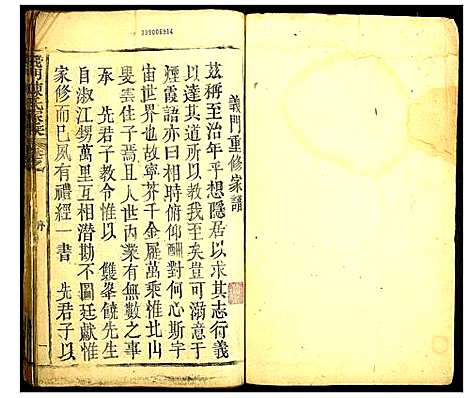 339006964
義門重修家譜
茲稱至治年平想隱居以求其志行義
以達其道所以教我至矣豈可溺意于
煙霞語亦曰相時俯仰酬對何心斯宇
宙世界也故寧芥千金屣萬乘惟北山
旻雲佳子焉且人世內業有無數之事
承　先君子教令惟以　雙峯饒先生
自淑江甥萬里互相潛勘不圖廷獻惟
家修而已夙有禮經一書　先君子以
義門陳氏家乘
一